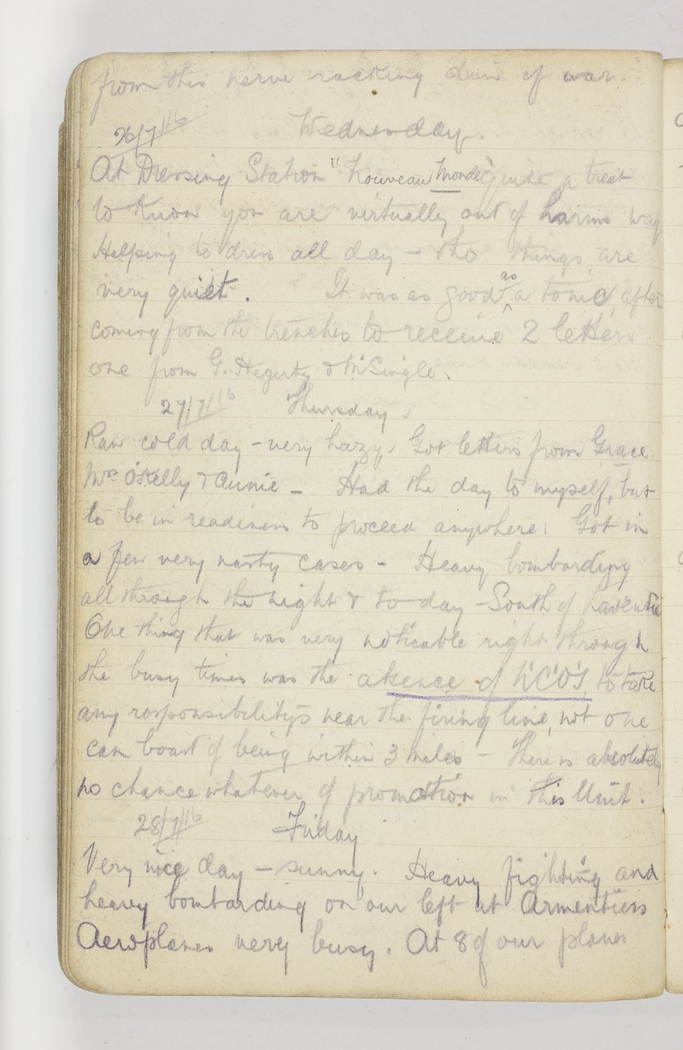 from this nerve racking din of war.
26/7/16 Wednesday.
At Dressing Station "Nouveau Monde" quite a treat
to know you are virtually out of harms way
Helping to dress all day - tho things are
very quiet. It was as good as a tonic, after
coming from the trenches to receive 2 letters
one from G. Hegerty & Mc Single.
27/7/16 Thursday.
Raw cold day - very hazy. Got letters from Grace
Mrs O'Kelly & Aunie - Had the day to myself, but
to be in readiness to proceed anywhere. Got in
a few very nasty cases - Heavy bombarding
all through the night & to-day - South of Laventie
One thing that was very noticable right through
the busy times was the absence of N.C.O's to take
any rosponsibility's near the firing line, not one
can boast of being within 3 miles - There is absolutely
no chance whatever of promotion in this Unit.
28/7/16 Friday
Very nice day - sunny. Heavy fighting and
heavy bombarding on our left at Armentiers
Aeroplanes very busy. At 8 of our planes